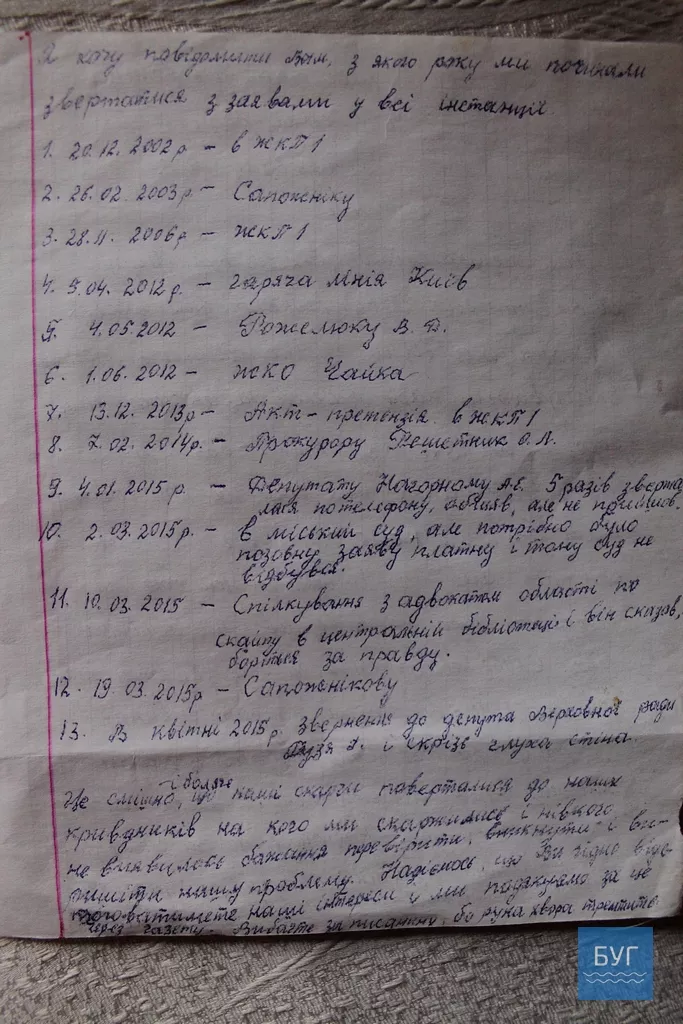 Я хочу повідомити Вам, з якого року ми починали
звертатися з заявами у всі інстанції
1. 20.12.2002р – в ЖКП 1
2. 26.02.2003р – Сапожніку
3. 28.11.2006р – ЖКП 1
4. 9.04.2012р. – гаряча лінія Київ
5. 4.05.2012 – Рожелюку В.Д.
6. 1.06.2012 – ЖКО Чайка
7. 13.12.2013р – Акт-претензія в ЖКП 1
8. 7.02.2014р. – Прокурору Решетник О.Л.
9. 4.01.2015 р – Депутату Нагорному А.Є. 5 разів зверта
лася по телефону, обіцяв, але не прийшов.
10. 2.03.2015р. – в міський суд, але потрібно було
позовну заяву платну і тому суд не
відбувся.
11. 10.03.2015 – Спілкування з адвокатом області по
скайпу в центральній бібліотеці і він сказав,
боріться за правду.
12. 19.03.2015р – Сапожнікову
13. В квітні 2015р. звернення до депутата Верховної ради
і скрізь глуха стіна.
і боляче
Це смішно, що наші скарги поверталися до наших
кривдників на кого ми скаржилися і нівкого
не виявилось бажання перевірити, вникнути і ви-
рішити нашу проблему. Надіємось, що Ви гідно
наші інтереси і ми подякуємо за це
через газету. Вибачте за писанину, бо рука хвора
БУГ